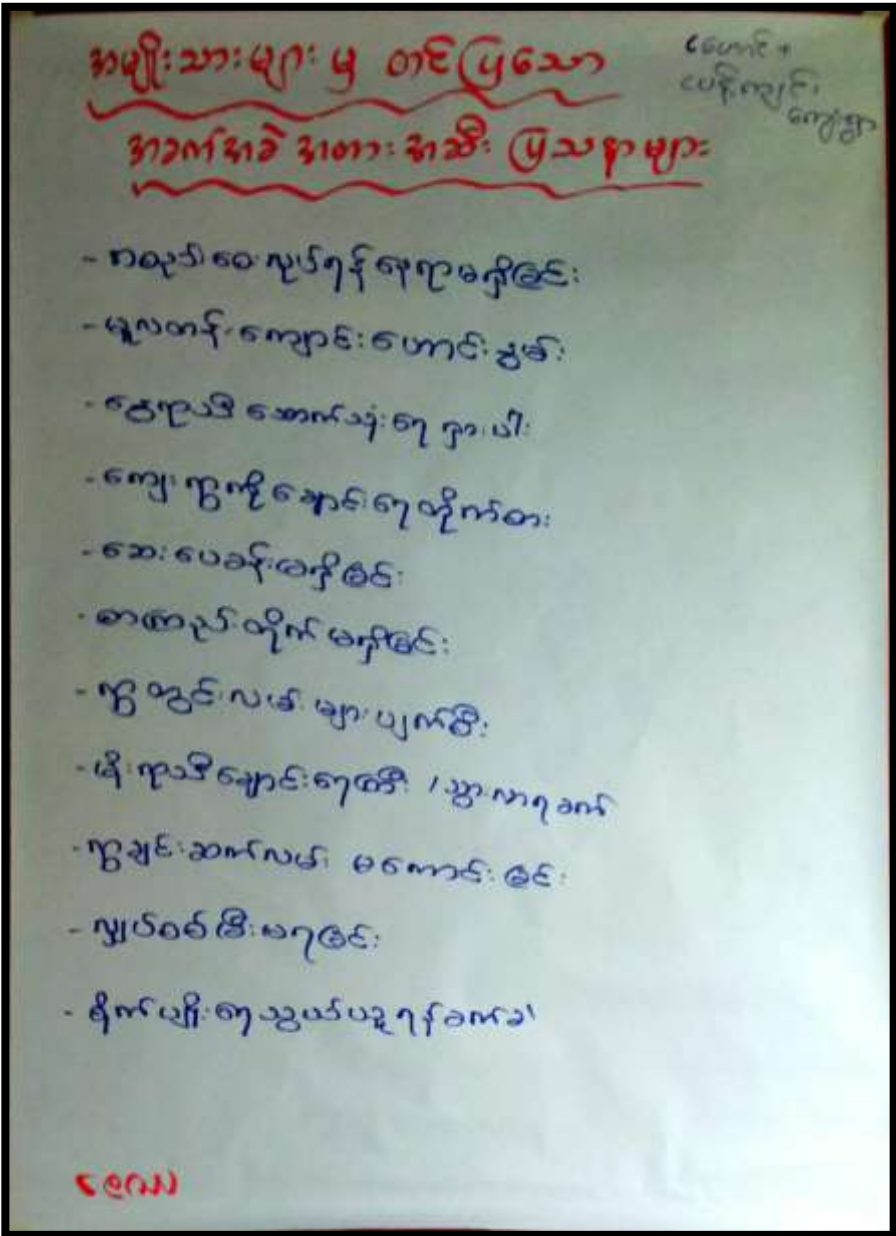 အမျိုးသားများ မှ တင်ပြသော
အခက်အခဲ အတား အဆီး ပြသနာများ
ကျေးရွာ
- ကထုပ်ဝေး လုပ်ရန် နေရာမရှိခြင်း
- မူလတန်းကျောင်း ဟောင်းနွမ်း
- နွေရာသီ သောက်သုံးရေ ရှားပါး
- ကျေးရွာကို ချောင်းရေတိုက်စား
- ဆေးပေးခန်းမရှိခြင်း
- စာကြည့်တိုက် မရှိခြင်း
- ရွာတွင်းလမ်းများပျက်စီး
- မိုးရာသီချောင်းရေကြီး / သွားလာရခက်
- ရွာချင်းဆက်လမ်း မကောင်းခြင်း
- လျှပ်စစ်မီးမရခြင်း
- စိုက်ပျိုးရေ သွယ်ယူရန်ခက်ခဲ